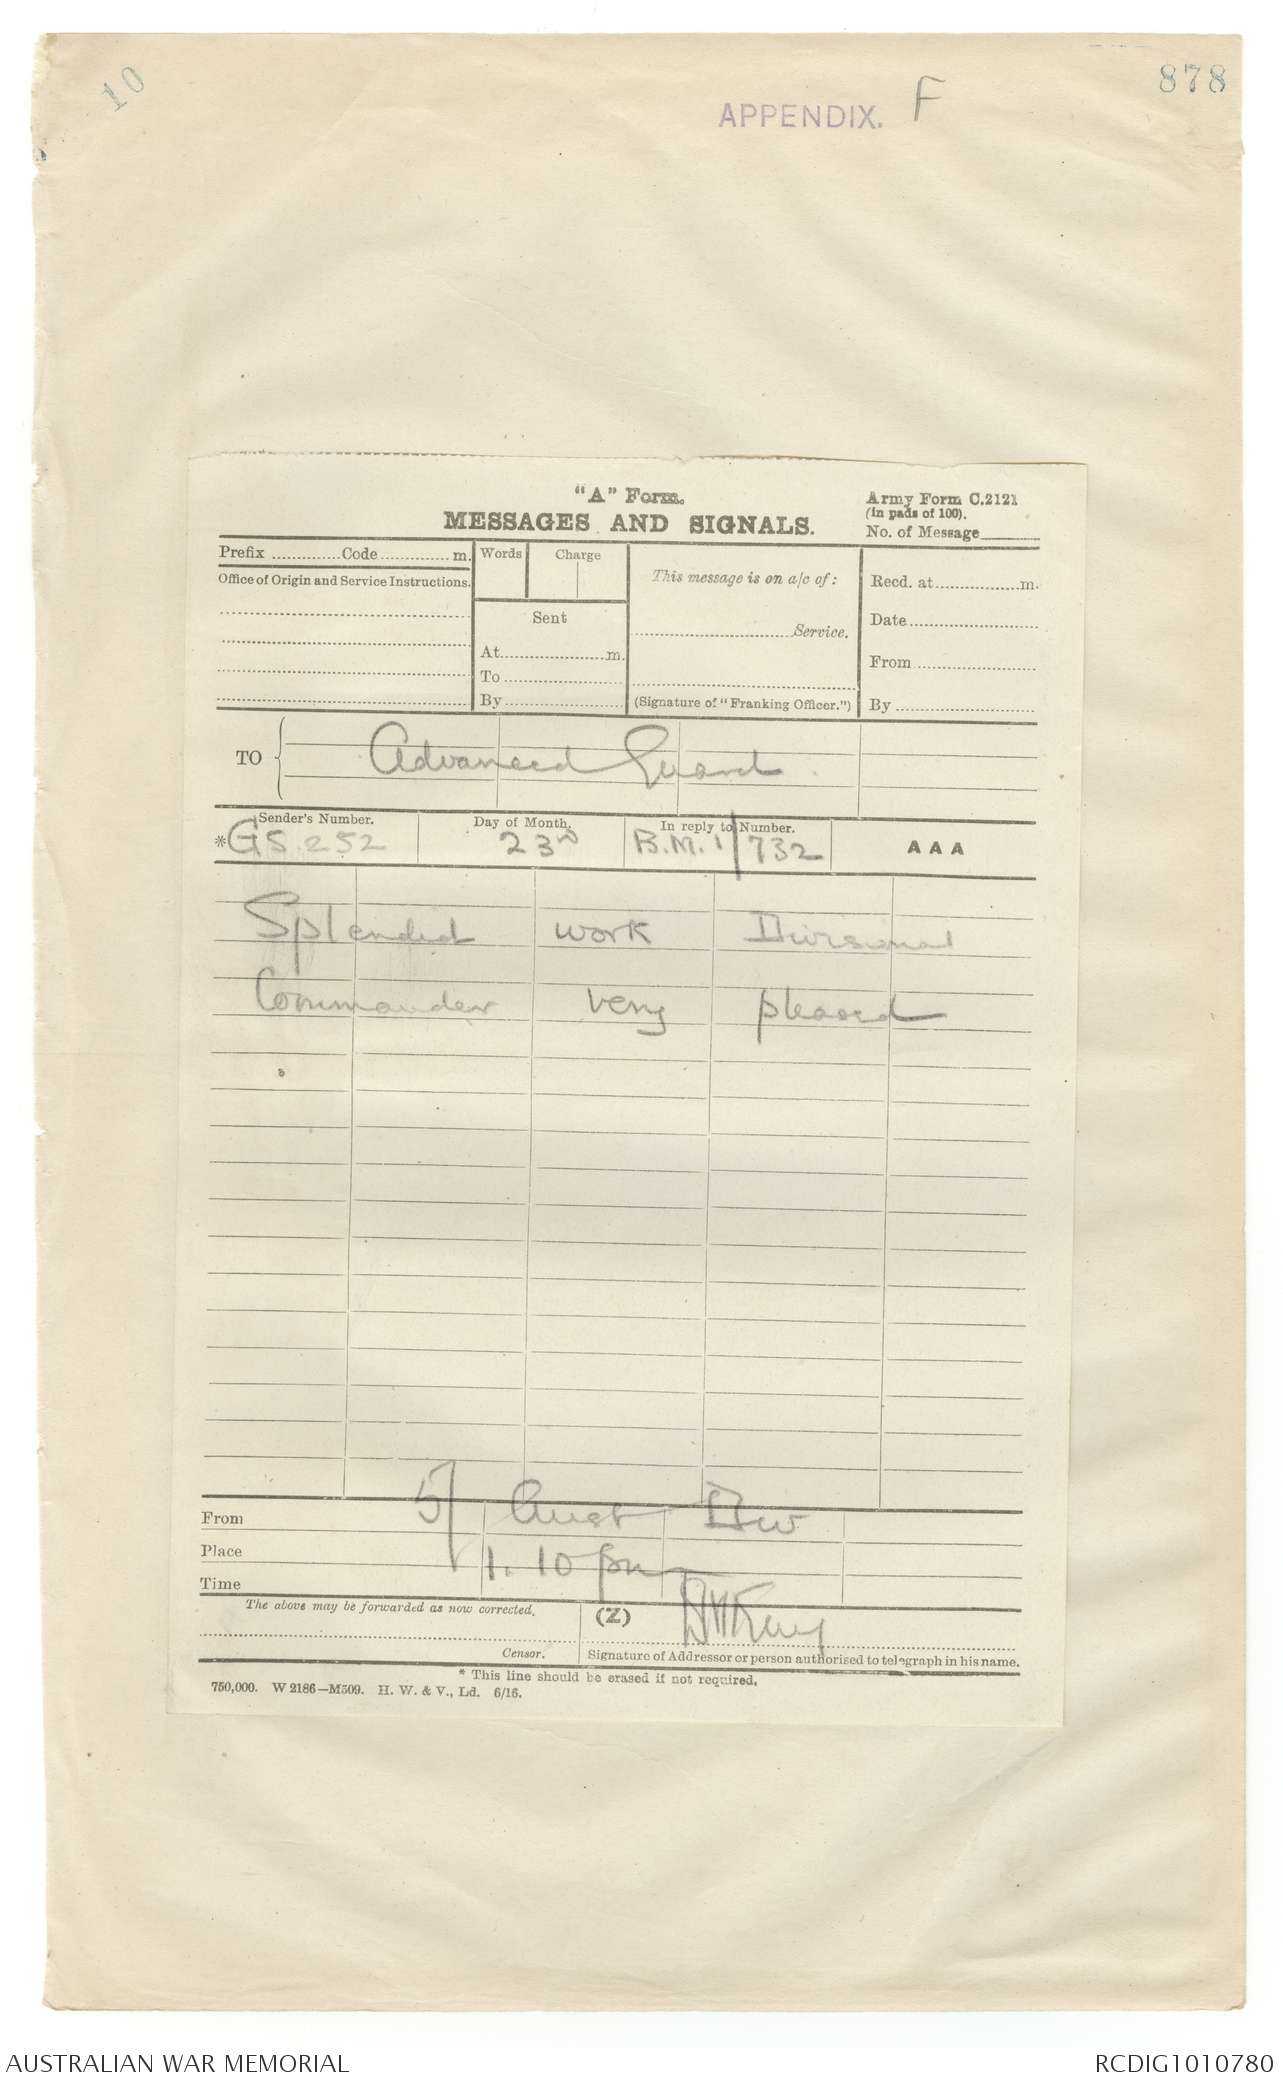 10
878
APPENDIX. F
"A" Form.
MESSAGES AND SIGNALS.
Army Form C.2121
(in pads of 100).
No. of Message
Prefix Code m.
Words Charge
This message is on a/c of:
Recd. at m.
Office of Origin and Service Instructions.
Sent
Service.
Date
At m.
From
To
By
(Signature of "Franking Officer.")
By
TO Advanced Guard
Sender's Number. Day of Month. In reply to Number.
*GS 252 23rd B.M. 1/732 AAA
Splendid work Divisional
Commander very pleased
From 5/ Aust Div
Place
Time 1.10 pm
The above may be forwarded as now corrected.
(Z)
Censor.
Signature of Addressor or person authorised to telegraph in his name.
* This line should be erased if not required.
750,000. W 2186—M509. H. W. & V., Ld. 6/16.
AUSTRALIAN WAR MEMORIAL
RCDIG1010780